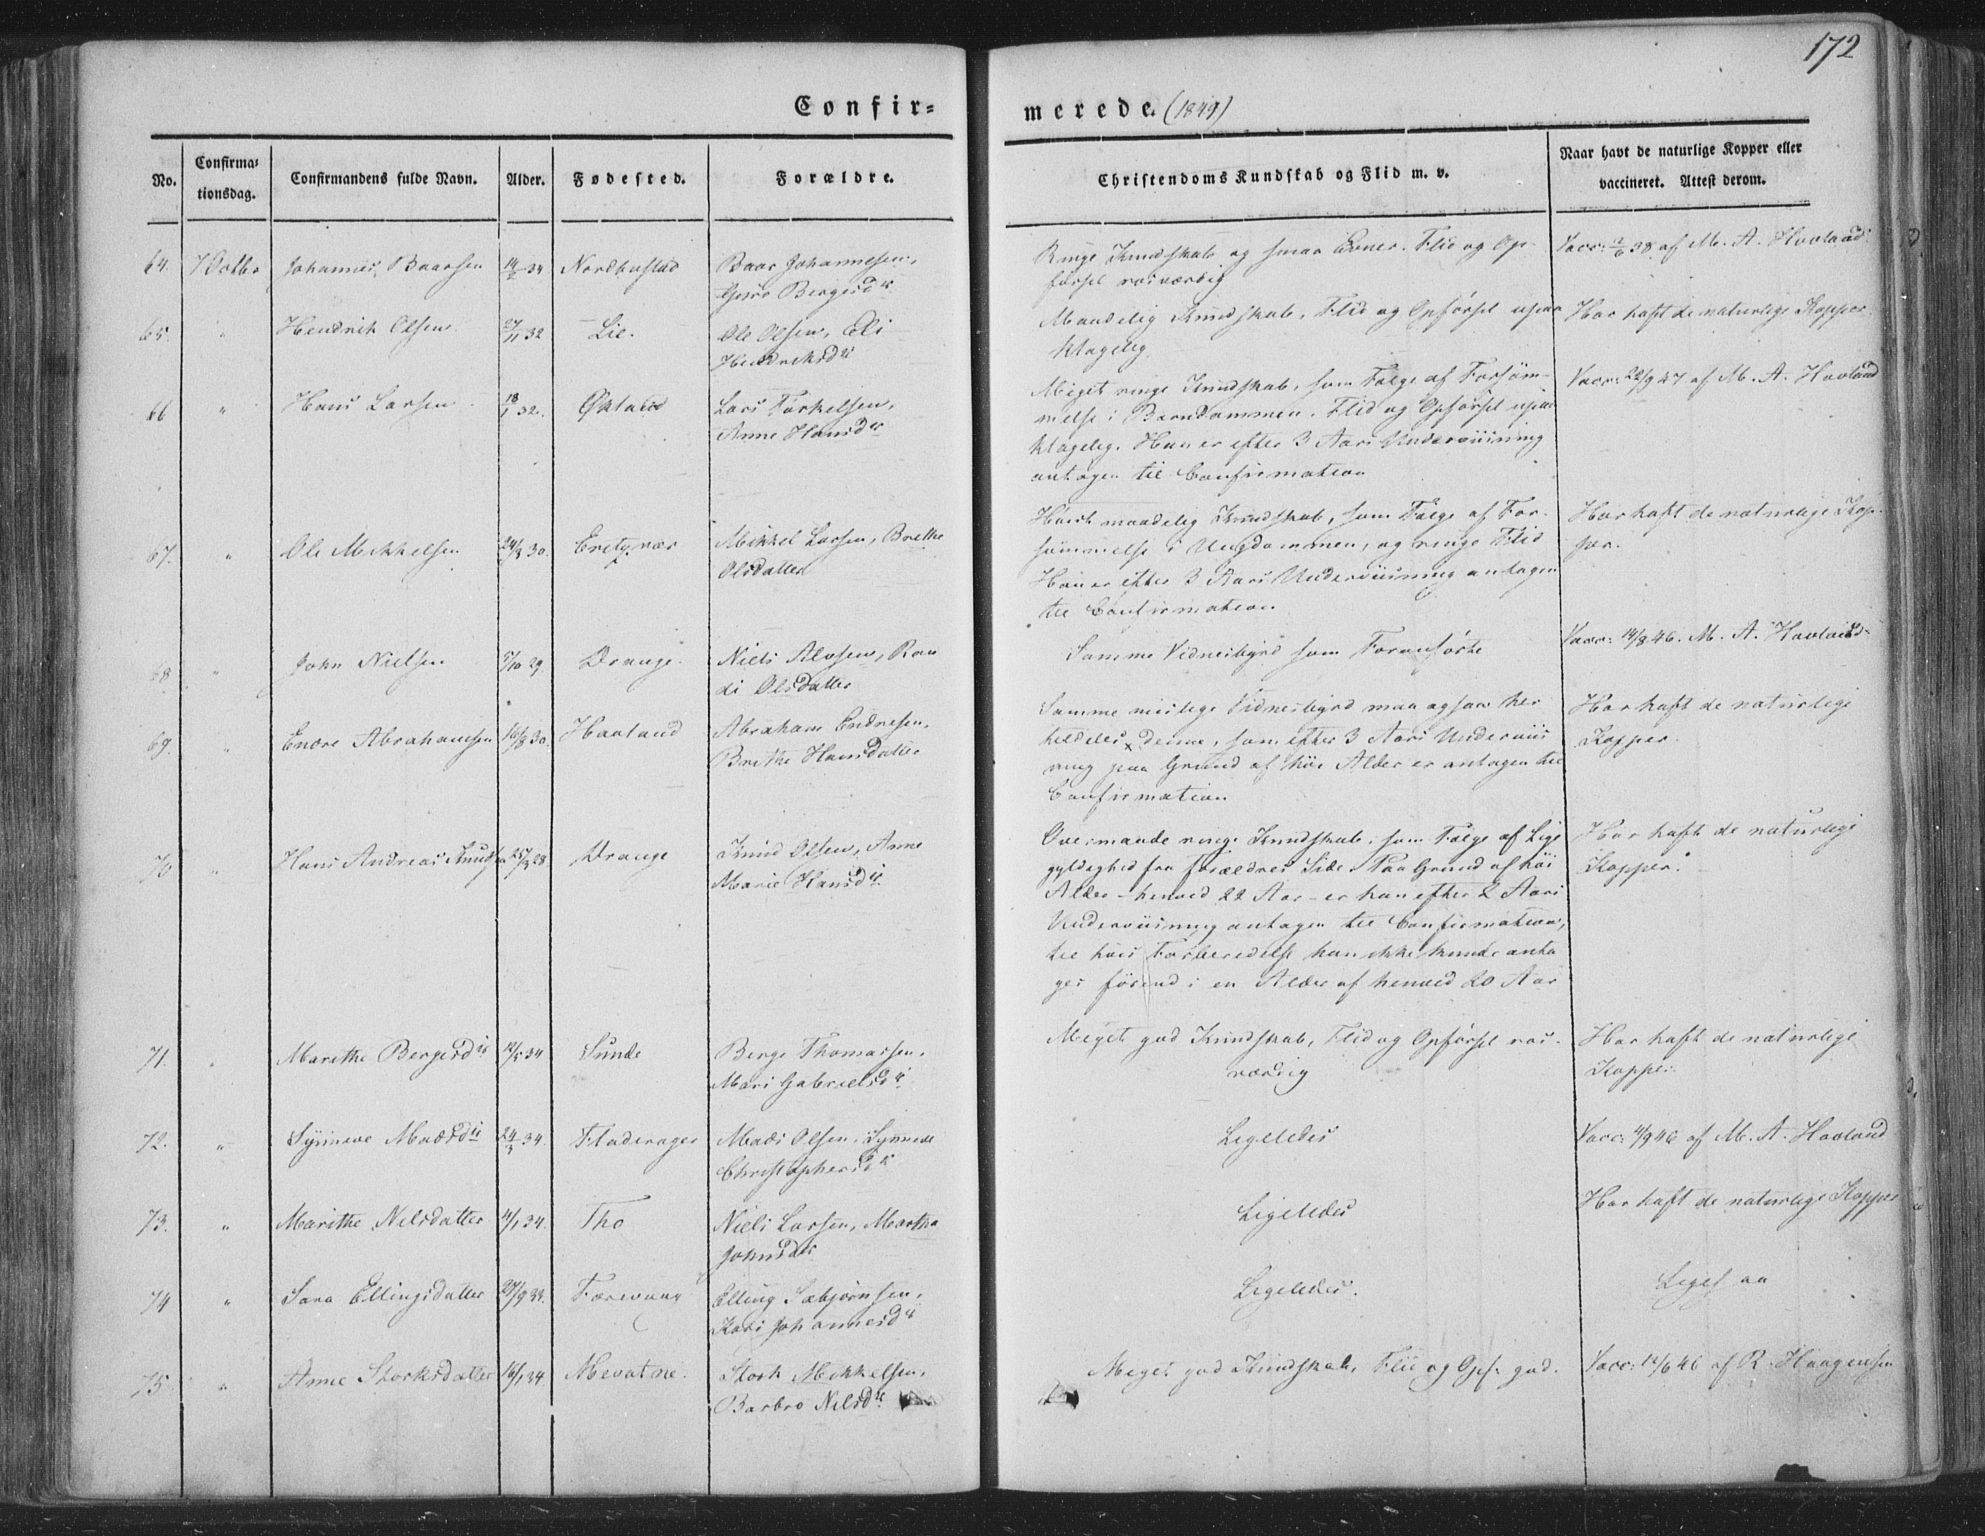 172
Confir=
merede. (1849)
No.
Confirma-
tionsdag.
Confirmandens fulde Navn.
Alder.
Fødested.
Forældre.
Christendoms Kundskab og Flid m. v.
Naar havt de naturlige Kopper eller
vaccineret. Attest derom.
64. 7 Octbr Johannes Baarsen 14/2 34 Nordhustad Baar Johannesen,
Guro Bergesdtr
Ringe Kundskab og smaa Evner. Flid og Op-
førsel rosværdig
Vacc: 12/6 38 af M. A. Havland
65. " Hendrik Olsen 27/11 32 Lie. Ole Olsen, Eli
Hendriksdtr
Maadelig Kundskab, Flid og Opførsel upaa
klagelig
Har haft de naturlige Kopper
66 " Hans Larsen 18/1 32. Øktaid Lars Torkelsen,
Anne Hansdtr
Meget ringe Kundskab, som Følge af Forsøm-
melse i Barndommen. Flid og Opførsel upaa
klagelig. Han er efter 3 Aars Underviisning
antagen til Confirmation
Vacc: 22/9 47 af M. A. Havland
67. " Ole Mikkelsen 24/3 30. Mikkel Larsen, Brithe
Olsdatter
Høist maadelig Kundskab, som Følge af For-
sømmelse i Ungdommen, og ringe Flid
Han er efter 3 Aars Underviisning antagen
til Confirmation
Har haft de naturlige Kop-
per.
68 " John Nielsen 5/10 29. Drange. Niels Alvsen, Ran
di Olsdatter
Samme Vidnesbyrd som Foranførte
Vacc: 14/8 46. M. A. Havland
69. " Endre Abrahamsen 16/8 30. Haaland Abraham Endresen,
Brithe Hansdatter
Samme Vidnesbyrd maa ogsaa her
denne, som efter 3 Aars Underviis
ning paa Grund af høi Alder er antagen til
Confirmation
Har haft de naturlige
Kopper.
70 " Hans Andreas Knudsen 25/3 28 Drange Knud Olsen, Anne
Marie Hansdtr
Overmaade ringe Kundskab, som Følge af Lige
gyldighed fra Forældres Side. Paa Grund af høi
Alder – henved 22 Aar – er han efter 2 Aars
Underviisning antagen til Confirmation,
til hvis Forberedelse han ikke kunde anta
ges førend i en Alder af henved 20 Aar
Har haft de naturlige
Kopper.
71. " Marithe Bergesdtr 12/5 34 Sunde Berge Thomassen,
Mari Gabrielsdtr
Meget god Kundskab, Flid og Opførsel ros-
værdig
Har haft de naturlige
Kopper.
72. " Synneve Madsdtr 24/3 34. Fladerager Mads Olsen, Synneve
Christophersdtr
Ligeledes
Vacc: 4/9 46 af M. A. Havland
73. " Marithe Nilsdatter 4/1 34. Tho Niels Larsen, Martha
Johnsdtr
Ligeledes
Har haft de naturlige Kopper
74 " Sara Ellingsdatter 27/9 33. Færevaag Elling Sæbjørnsen,
Kari Johannesdtr
Ligeledes.
Ligesaa
75. " Anne Storksdatter 16/1 34. Mevatne. Stork Mikkelsen,
Barbro Nilsdtr
Meget god Kundskab, Flid og Opf. god.
Vacc: 12/6 46 af R. Haagensen